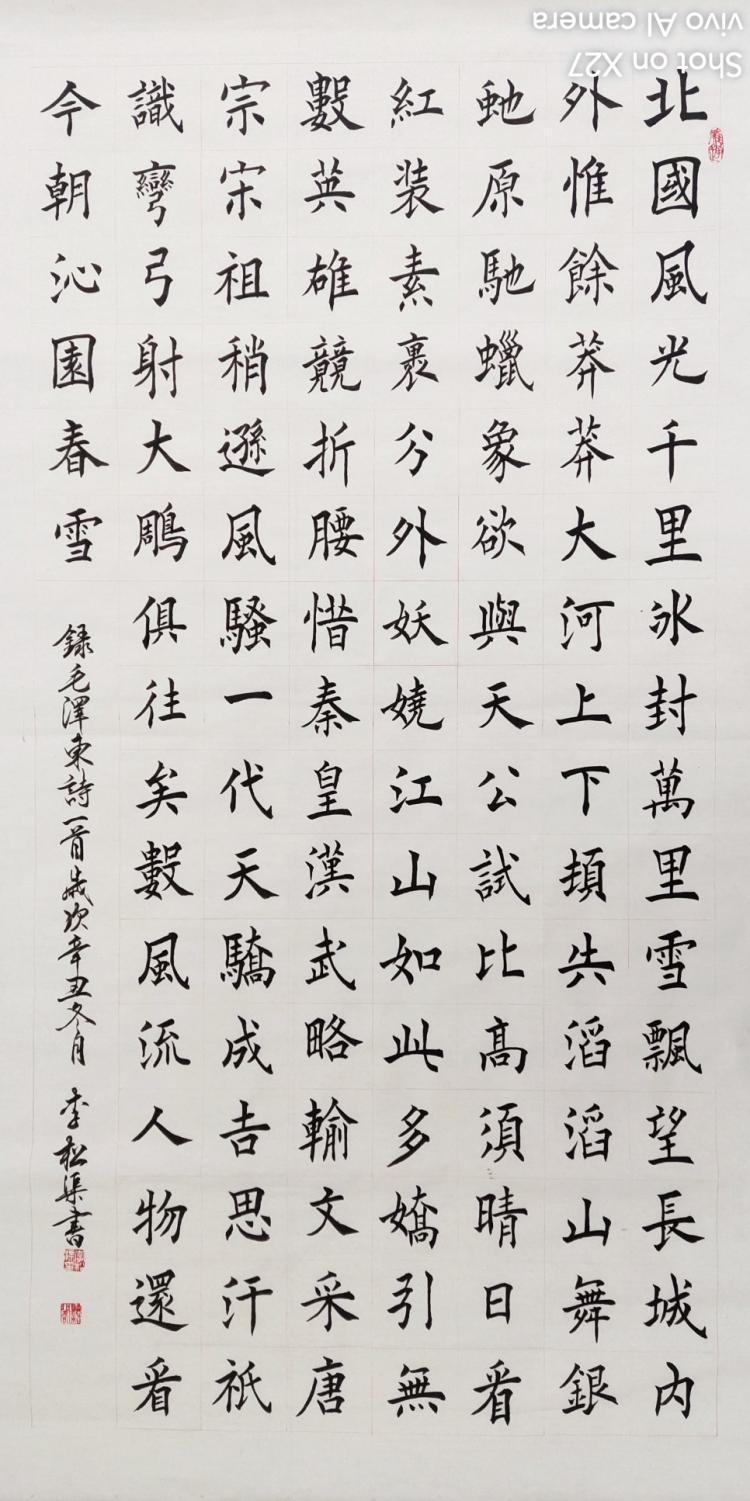 北國風光千里冰封萬里雪飄望長城内
外惟餘莽莽大河上下頓失滔滔山舞銀
虵原馳蠟象欲與天公試比高須晴日看
紅装素裹分外妖嬈江山如此多嬌引無
數英雄競折腰惜秦皇漢武略輸文采唐
宗宋祖稍遜風騷一代天驕成吉思汗祇
識彎弓射大鵰俱往矣數風流人物還看
今朝沁園春雪
録毛澤東詩一首歲次辛丑冬月 李松渠書
Shot on X27
vivo AI camera